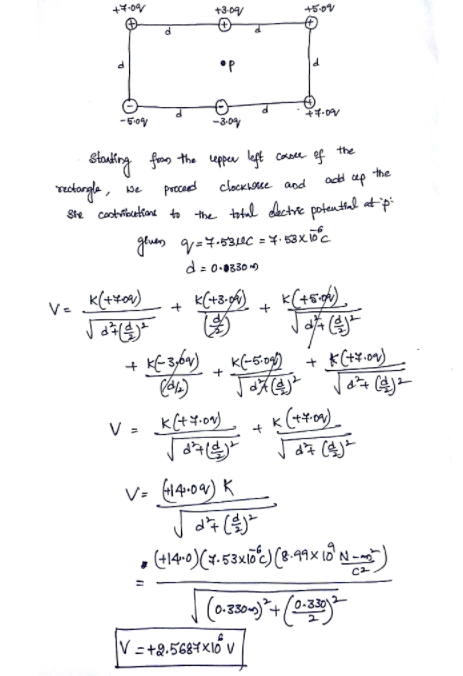 +7.0q +3.0q +5.0q
d d
d •p d
d d
-5.0q -3.0q +7.0q
Starting from the upper left corner of the
rectangle, we proceed clockwise and add up the
six contributions to the total electric potential at 'p':
given q = 7.53μC = 7.53×10⁻⁶C
d = 0.0330 m
V = K(+7.0q)/√(d²+(d/2)²) + K(+3.0q)/(d/2) + K(+5.0q)/√(d²+(d/2)²)
+ K(-3.0q)/(d/2) + K(-5.0q)/√(d²+(d/2)²) + K(+7.0q)/√(d²+(d/2)²)
V = K(+7.0q)/√(d²+(d/2)²) + K(+7.0q)/√(d²+(d/2)²)
V = (+14.0q) K/√(d²+(d/2)²)
= (+14.0)(7.53×10⁻⁶C)(8.99×10⁹ N-m²/C²)/√((0.330m)²+(0.330/2)²)
V = +2.5687×10⁶ V